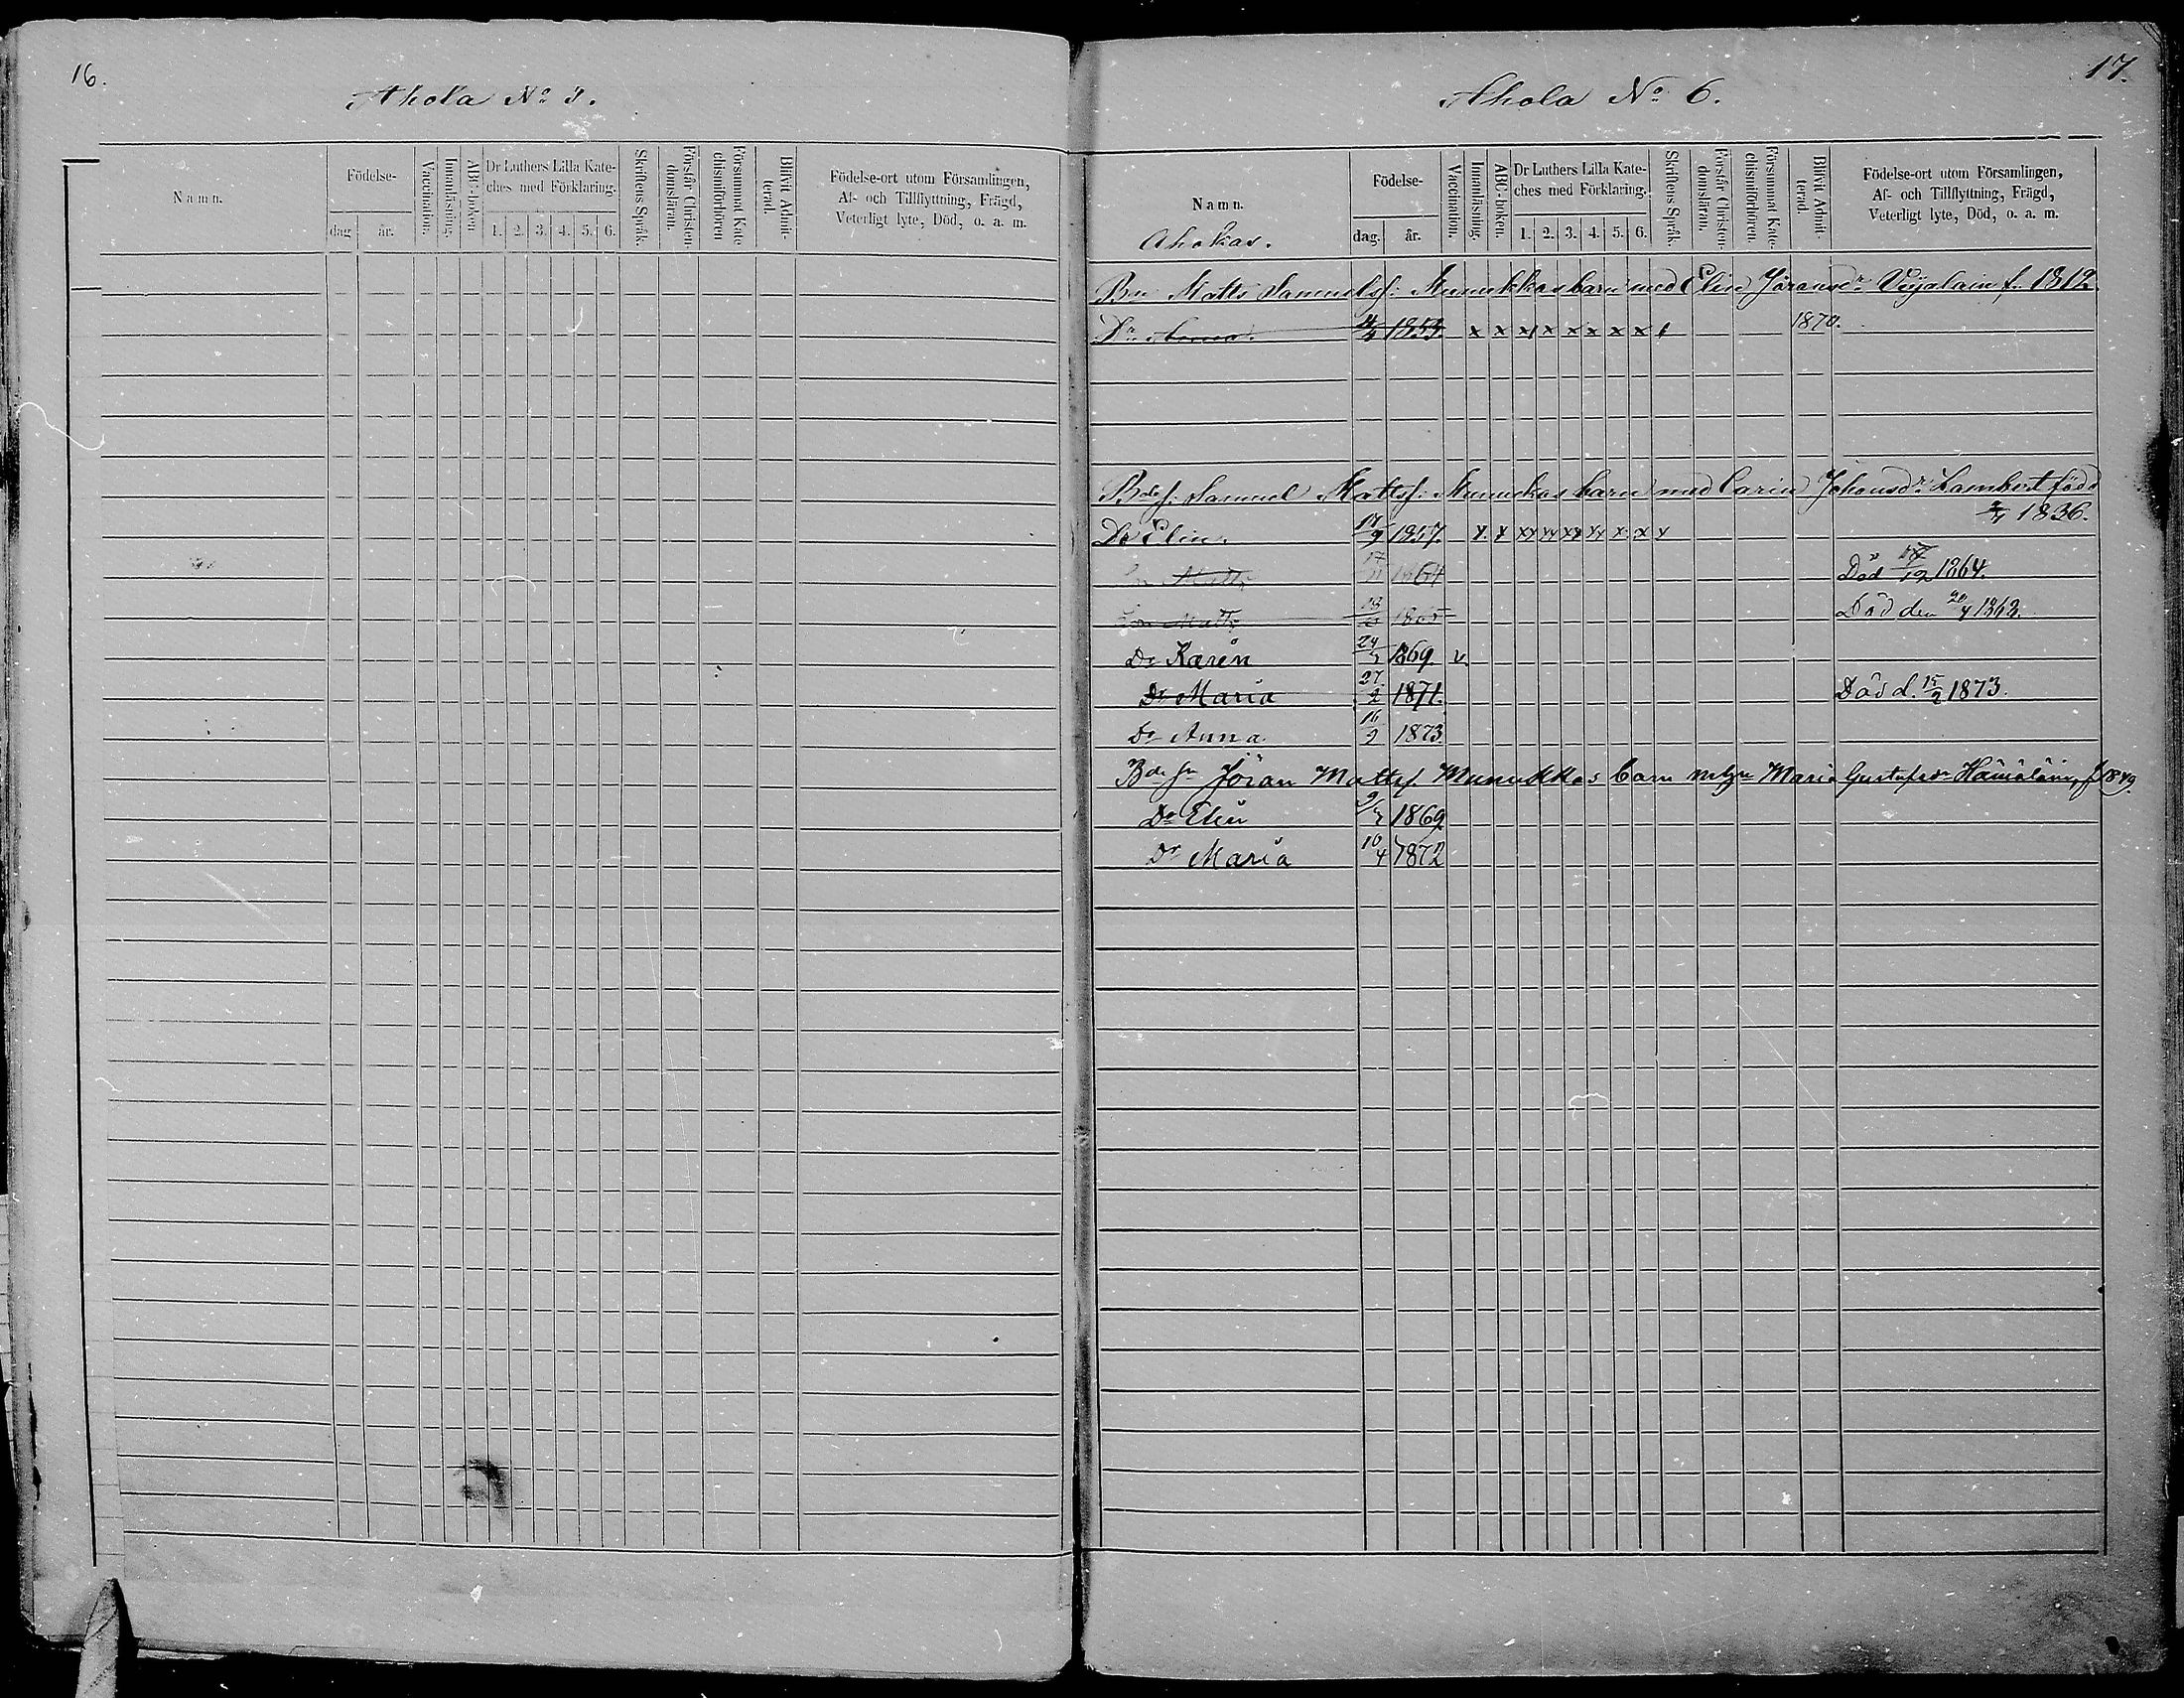 16.
Ahola No 3.
Namn.
Födelse-
dag
år.
Vaccination.
Innanläsning.
ABC-boken
Dr Luthers Lilla Kate-
ches med Förklaring.
1. 2. 3. 4. 5. 6.
Skriftens Språk.
Förstår Christen-
domsläran.
Försummat Kate
chismiförhören
Blifvit Admit-
terad.
Födelse-ort utom Församlingen,
Af- och Tillflyttning, Frägd,
Veterligt lyte, Död, o. a. m.
17.
Ahola No 6.
Namn.
Ahokas.
Födelse-
dag.
år.
Vaccination.
Innanläsning.
ABC-boken.
Dr Luthers Lilla Kate-
ches med Förklaring.
1. 2. 3. 4. 5. 6.
Skriftens Språk.
Förstår Christen-
domsläran.
Försummat Kate-
chismiförhören.
Blifvit Admit-
terad.
Födelse-ort utom Församlingen,
Af- och Tillflyttning, Frägd,
Veterligt lyte, Död, o. a. m.
Bn Matts Samuelsf. Munukkas barn med Elin Jöransdr f. 1812.
Dr Anna. x x x x x x x x 1870.
Bdes f. Samuel Mattsf. Munukkas barn med Carin Johansdr Lambert född
1836.
Dr Elin. 17/9 1857. x x xx xx xx xx x x x
Matts 1864 Död 1864.
Matts Död den 20/4 1868.
Dr Karin 24 1869. v.
Dr Maria 27/2 1871. Död d. 15/2 1873.
Dr Anna 16/2 1873.
Bdes fn Jöran Mattsf. Munukkas barn Maria Gustafsdr Hämäläin, f. 1849.
Dr Elin 1869
Dr Maria 10/4 1872